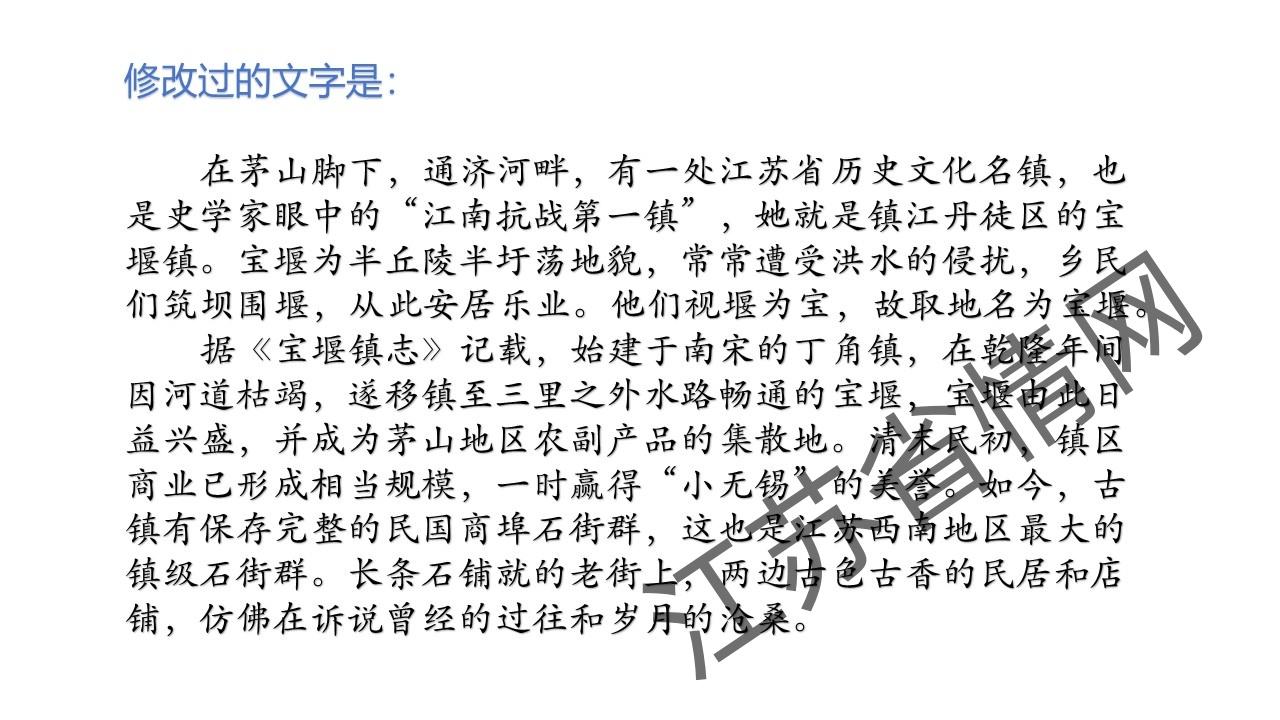 修改过的文字是：
在茅山脚下，通济河畔，有一处江苏省历史文化名镇，也
是史学家眼中的“江南抗战第一镇”，她就是镇江丹徒区的宝
堰镇。宝堰为半丘陵半圩荡地貌，常常遭受洪水的侵扰，乡民
们筑坝围堰，从此安居乐业。他们视堰为宝，故取地名为宝堰。
据《宝堰镇志》记载，始建于南宋的丁角镇，在乾隆年间
因河道枯竭，遂移镇至三里之外水路畅通的宝堰，宝堰由此日
益兴盛，并成为茅山地区农副产品的集散地。清末民初，镇区
商业已形成相当规模，一时赢得“小无锡”的美誉。如今，古
镇有保存完整的民国商埠石街群，这也是江苏西南地区最大的
镇级石街群。长条石铺就的老街上，两边古色古香的民居和店
铺，仿佛在诉说曾经的过往和岁月的沧桑。
江苏省情网